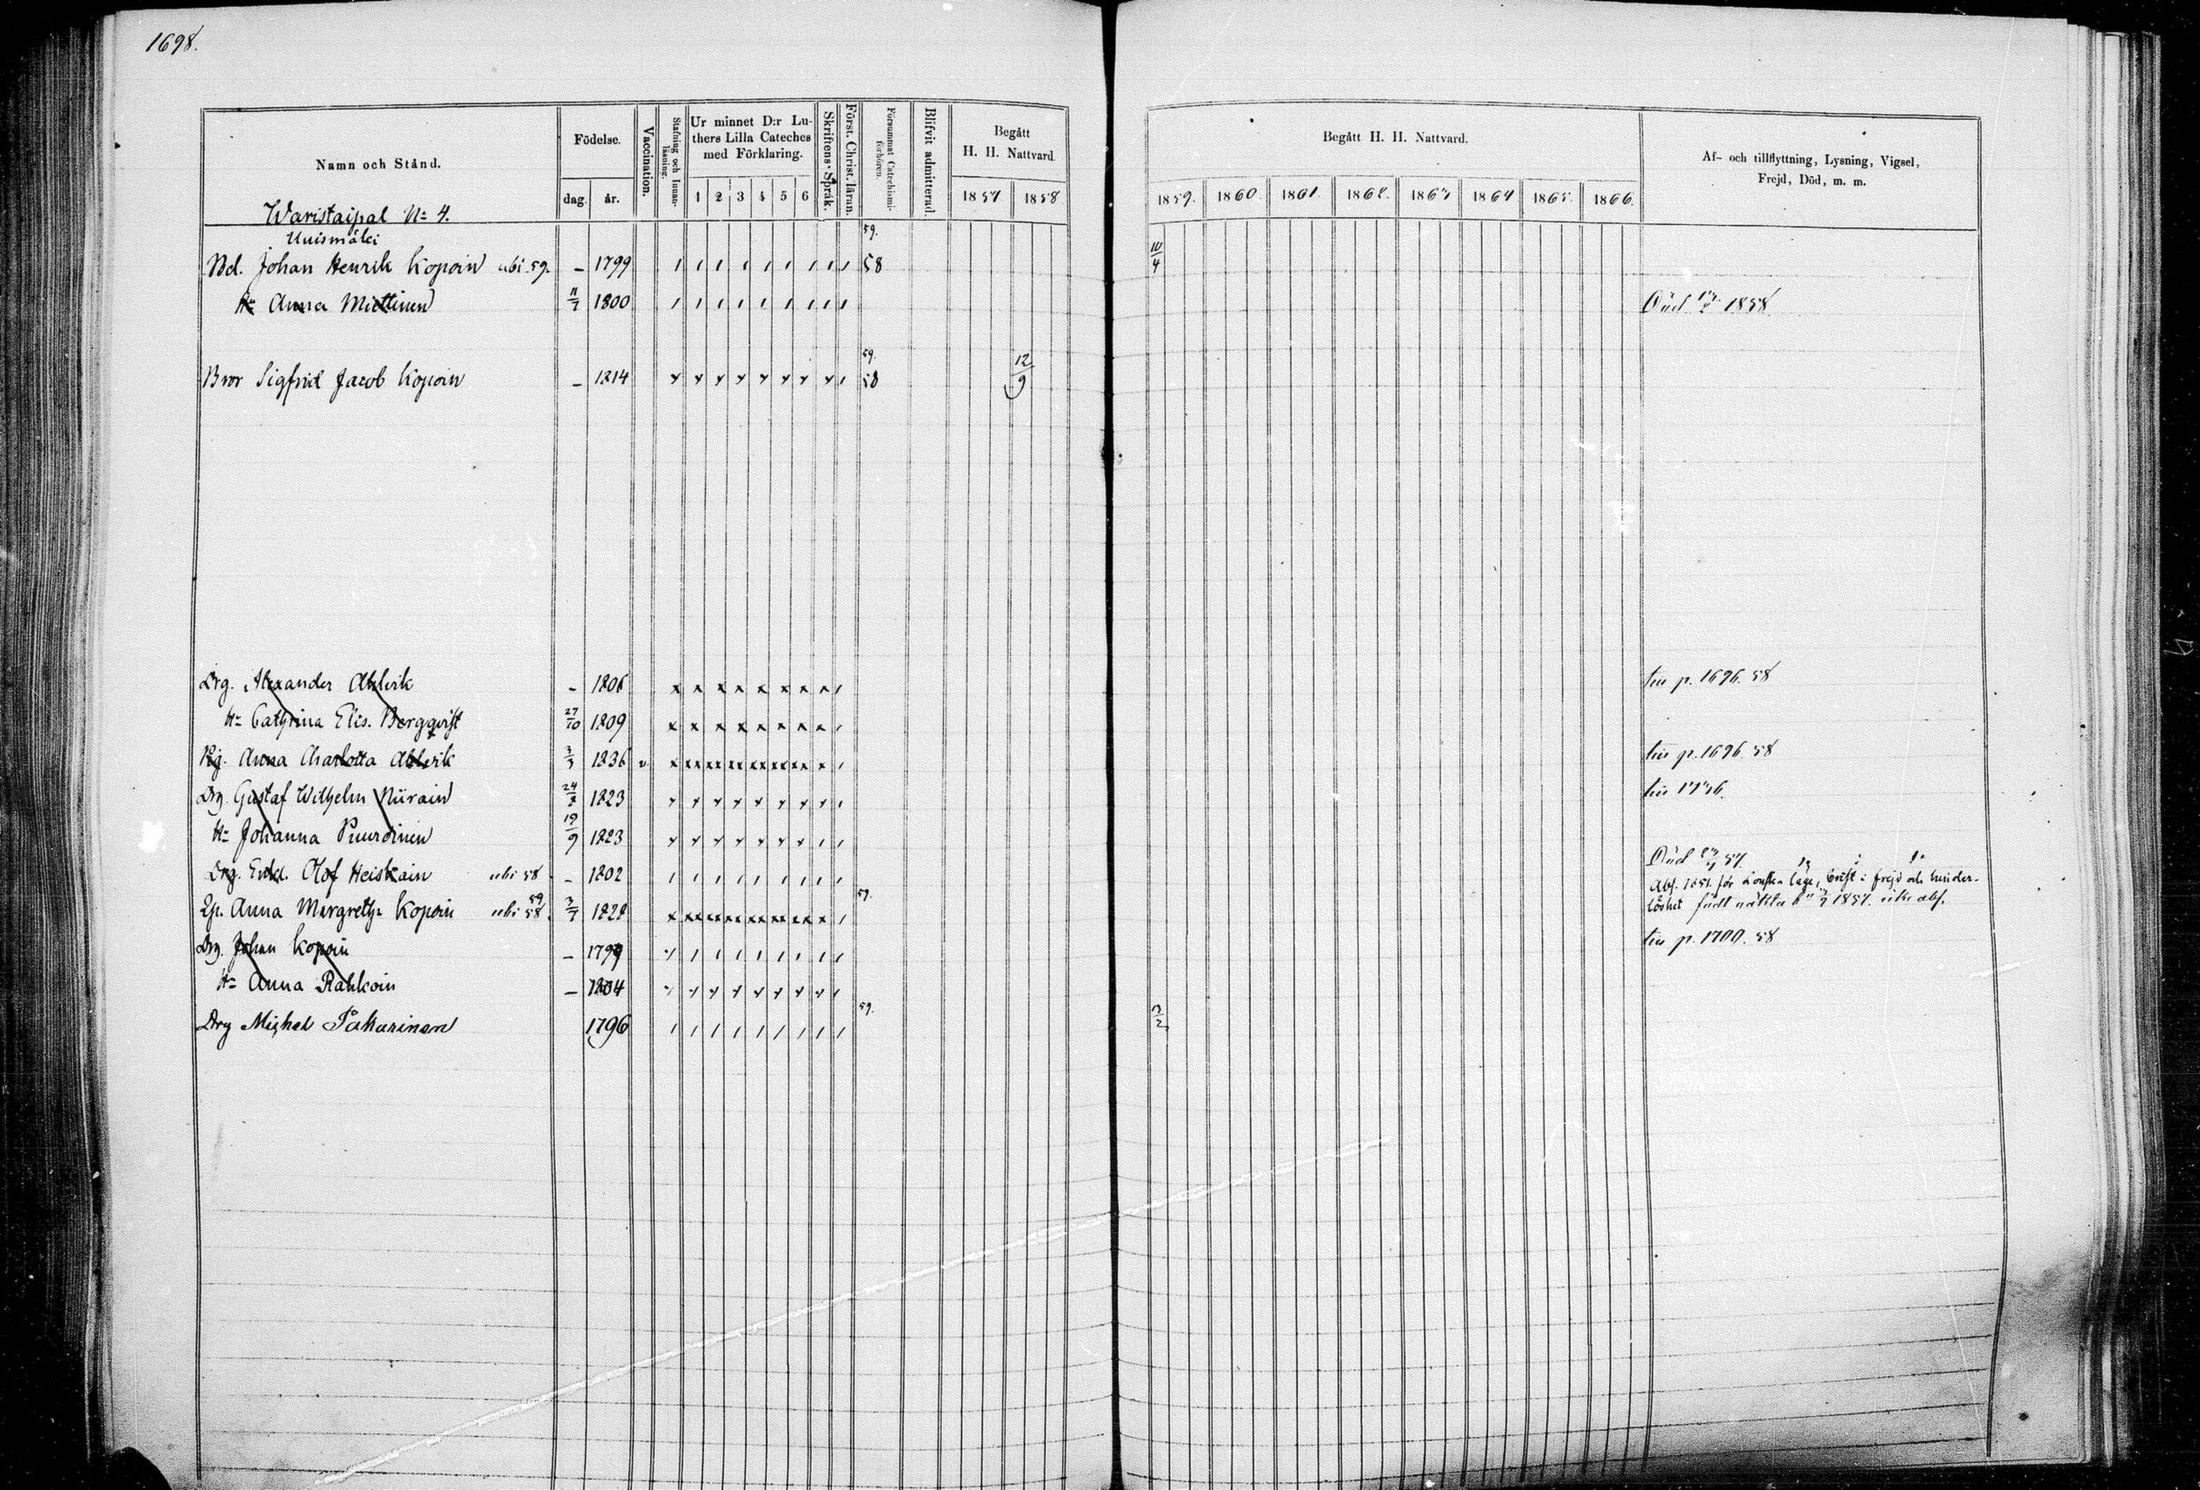 1698.
Namn och Stånd.
Födelse.
dag. år.
Vaccination.
Stafning och Innanläsning.
Ur minnet D:r Luthers Lilla Cateches med Förklaring.
1 2 3 4 5 6
Skriftens Språk.
Först. Christ. läran.
Försummat Catechismiförhören.
Blifvit admitterad.
Begått H. H. Nattvard.
1857 1858
Begått H. H. Nattvard.
1859. 1860. 1861. 1862. 1863 1864 1865. 1866.
Af- och tillflyttning, Lysning, Vigsel, Frejd, Död, m. m.
Waristaipal N:o 4.
Uuismäki
59.
Bd. Johan Henrik Kopoin ubi 59. – 1799 58 10/4
H:u Anna Miettinen 11/7 1800 Död 1858
59.
Bror Sigfrid Jacob Kopoin – 1814 58 12/9
Drg. Alexander Ahlvik – 1806 p. 1696. 58
H:u Cathrina Elis. Bergqvist 27/10 1809
Pig. Anna Charlotta Ahlvik 3/3 1836 v. p. 1696. 58
Drg. Gustaf Wilhelm Niirain 1823
H:u Johanna Puuroinen 19/9 1823
Drg. Enkl. Olof Heiskain ubi 58 – 1802 Död 57
Lp. Anna Margretha Kopoin ubi 58. 59 3/7 1828 59. Abs. 1851. för frejd och hinderlöshet född 1857.
Drg. Johan Kopoin – 1799 p. 1700. 58
H:u Anna Rahkoin – 1804
Drg Michel Pakarinen 1796 59. 13/2